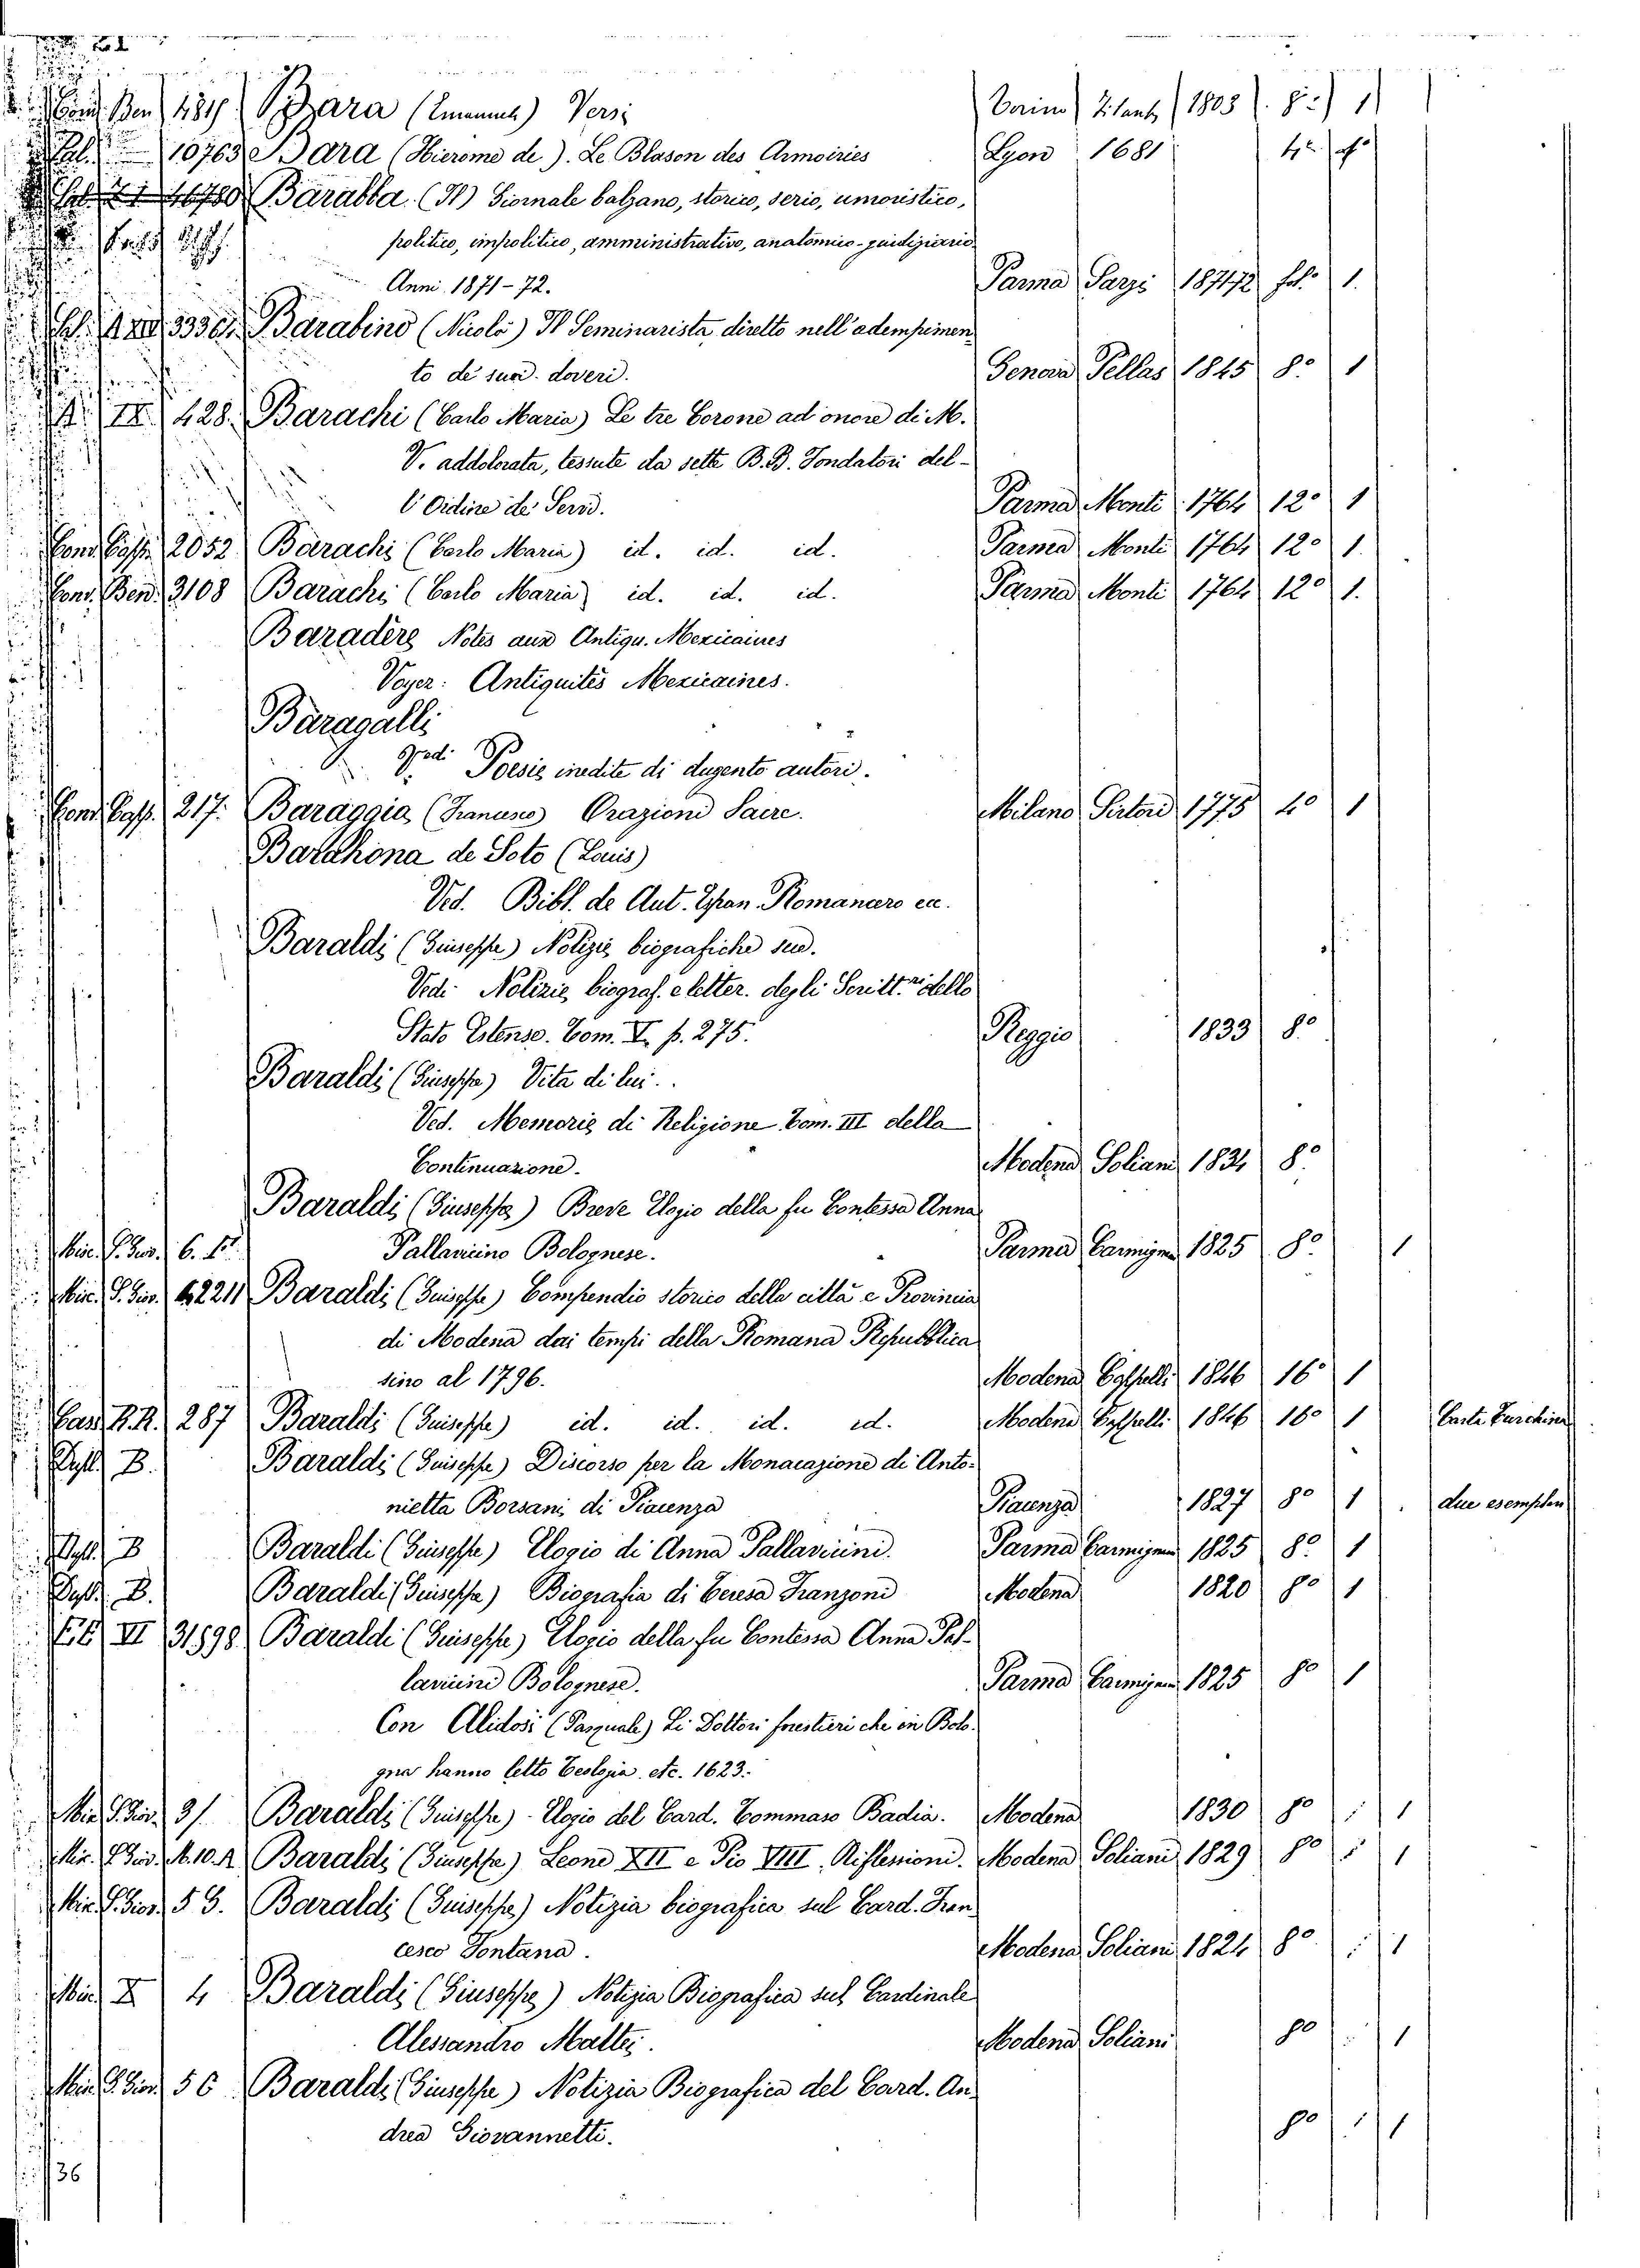 Bara (Emanuel) Versi 1803 8° 1
10763 Bara (Hierome de). Le Blason des Armoiries Lyon 1681
Barabba. (Il) Giornale balzano, storico, serio, umoristico,
politico, impolitico, amministrativo, anatomico-giudiziario
Anni 1871-72. Parma Sarzi 1871 72 fol. 1.
Barabino (Nicolò) Il Seminarista diretto nell'adempimen
to de suoi doveri. Genova Pellas 1845 8° 1
IX 428. Barachi (Carlo Maria) Le tre Corone ad onore di M.
V. addolorata, tessute da sette B.B. Fondatori del-
l'Ordine de' Servi. Parma Monti 1764 12° 1
2052 Barachi (Carlo Maria) id. id. id. Parma Monti 1764 12° 1.
Conv. Ben. 3108 Barachi (Carlo Maria) id. id. id. Parma Monti 1764 12° 1.
Baradère Notes aux Antiqu. Mexicaines
Voyez: Antiquités Mexicaines.
Baragalli
Vedi Poesie inedite di dugento autori.
217. Baraggia (Francesco) Orazioni Sacre. Milano Sirtori 1775 4° 1
Barahona de Soto (Louis)
Ved. Bibl. de Aut. Espan. Romancero ec.
Baraldi (Giuseppe) Notizie biografiche sue.
Vedi Notizie biograf. e letter. degli Scritt.ri dello
Stato Estense. Tom. V. p. 275. Reggio 1833 8°
Baraldi (Giuseppe) Vita di lui.
Ved. Memorie di Religione Tom. III della
Continuazione. Modena Soliani 1834 8°
Baraldi (Giuseppe) Breve Elogio della fu Contessa Anna
Pallavicino Bolognese. Parma Carmignani 1825 8° 1
Baraldi (Giuseppe) Compendio storico della città e Provincia
di Modena dai tempi della Romana Repubblica
sino al 1796. Modena Cappelli 1846 16° 1
287 Baraldi (Giuseppe) id. id. id. id. Modena Cappelli 1846 16° 1 Carta Turchina
B. Baraldi (Giuseppe) Discorso per la Monacazione di Anto-
nietta Borsani di Piacenza Piacenza 1827 8° 1 due esemplari
B Baraldi (Giuseppe) Elogio di Anna Pallavicini. Parma Carmignani 1825 8° 1
B. Baraldi (Giuseppe) Biografia di Teresa Franzoni Modena 1820 8° 1
VI 31898 Baraldi (Giuseppe) Elogio della fu Contessa Anna Pal-
lavicini Bolognese. Parma Carmignani 1825 8° 1
Con Alidosi (Pasquale) Li Dottori forestieri che in Bolo-
gna hanno letto Teologia. etc. 1623.
Baraldi (Giuseppe) Elogio del Card. Tommaso Badia. Modena 1830 8° 1
M. 10. Baraldi (Giuseppe) Leone XII e Pio VIII, Riflessioni. Modena Soliani 1829 8° 1
Baraldi (Giuseppe) Notizia biografica sul Card. Fran
cesco Fontana. Modena Soliani 1824 8° 1
4 Baraldi (Giuseppe) Notizia Biografica sul Cardinale
Alessandro Mattei. Modena Soliani 8° 1
Baraldi (Giuseppe) Notizia Biografica del Card. An-
drea Giovannetti. 8° 1
36